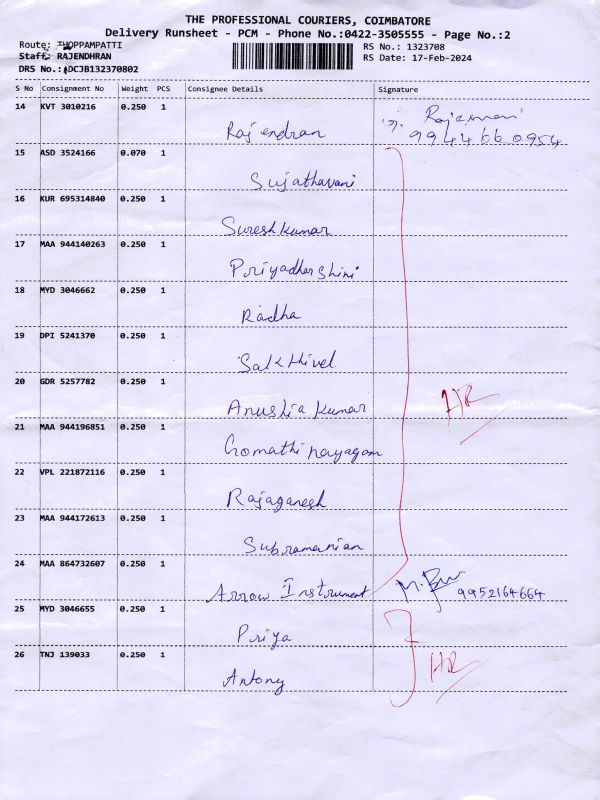 THE PROFESSIONAL COURIERS, COIMBATORE
Delivery Runsheet - PCM - Phone No.:0422-3505555 - Page No.:2
Route: THOPPAMPATTI RS No.: 1323708
Staff: RAJENDHRAN RS Date: 17-Feb-2024
DRS No.: DCJB132370802
S No Consignment No Weight PCS Consignee Details Signature
14 KVT 3010216 0.250 1 Rajendran 9944660954
15 ASD 3524166 0.070 1 Sujathavani
16 KUR 695314840 0.250 1 Sureshkumar
17 MAA 944140263 0.250 1 Priyadharshini
18 MYD 3046662 0.250 1 Radha
19 DPI 5241370 0.250 1 Sakthivel
20 GDR 5257782 0.250 1 Anushia kumar HR
21 MAA 944196851 0.250 1 Gomathi nayagam
22 VPL 221872116 0.250 1 Rajaganesh
23 MAA 944172613 0.250 1 Subramanian
24 MAA 864732607 0.250 1 Arrow Instrument 9952164664
25 MYD 3046655 0.250 1 Priya
26 TNJ 139033 0.250 1 Antony HR